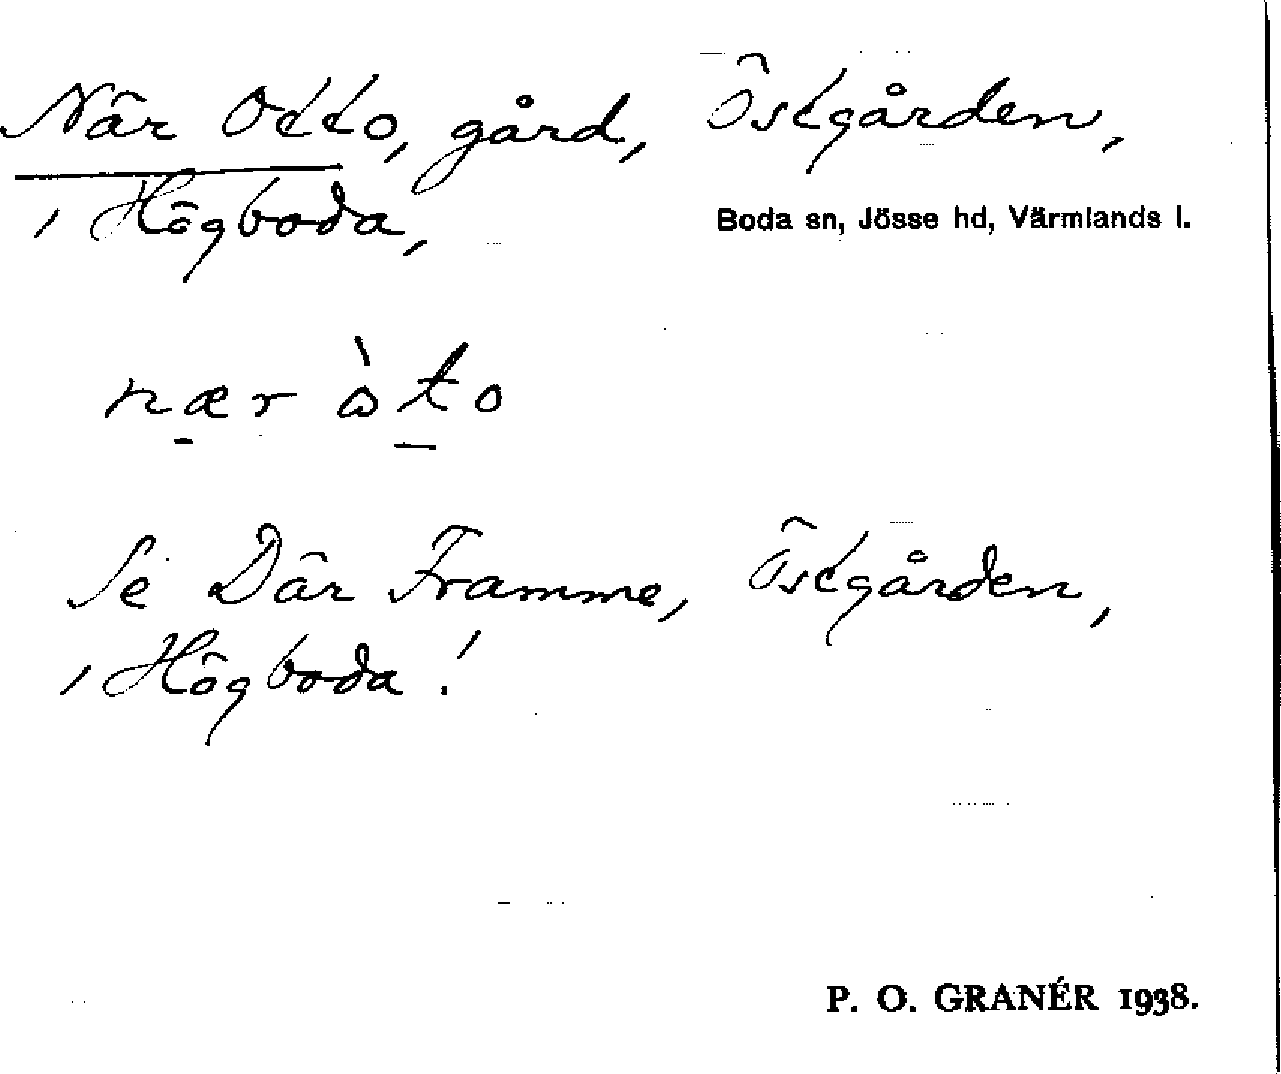 När Otto, gård, Östgården,
, Högboda,
Boda sn, Jösse hd, Värmlands l.
nær òto
Se Där Framme, Östgården,
, Högboda!
P. O. GRANÉR 1938.